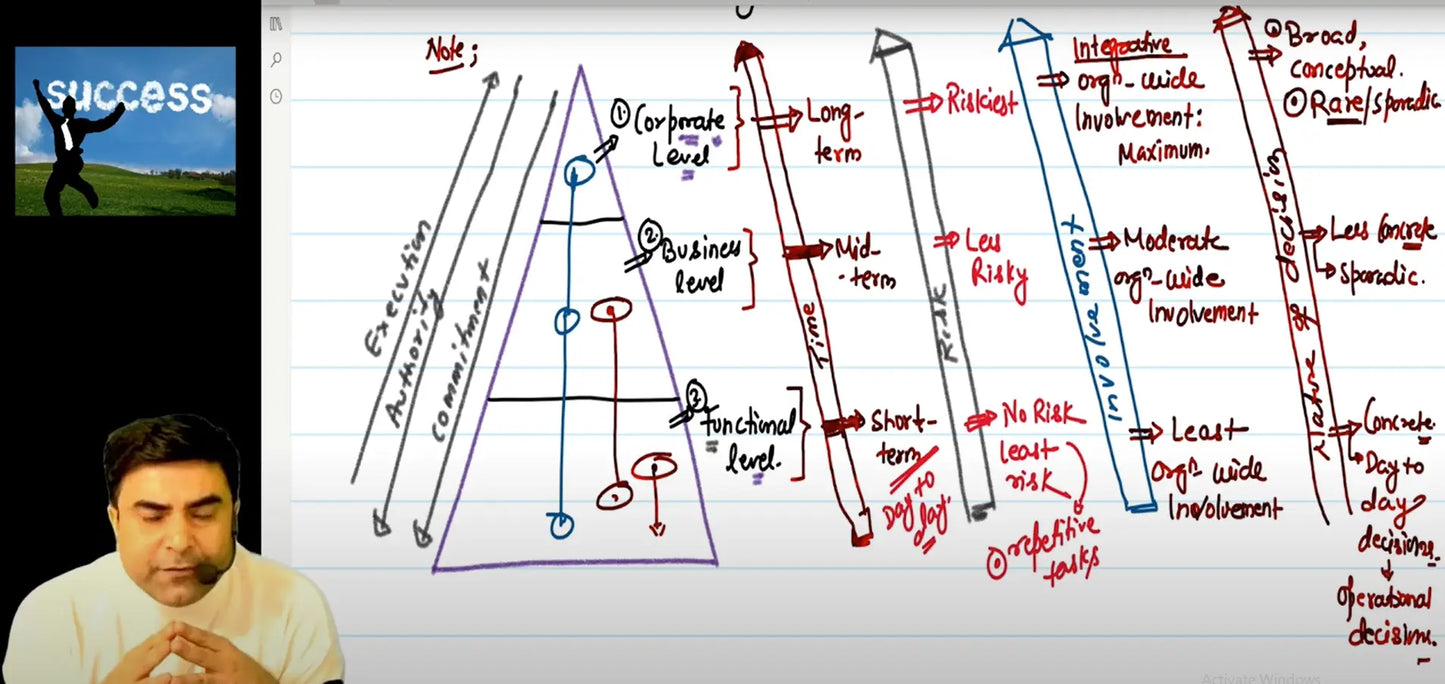 success
Note;
Execution
Authority
Commitment
① Corporate
Level
② Business
level
③ Functional
level.
Long-
term
Mid-
-term
Short-
term
Day to
day.
Time
Riskiest
Less
Risky
No Risk
least
risk
⊙ repetitive
tasks
Risk
Integrative
orgⁿ-wide
Involvement:
Maximum.
Moderate
orgⁿ-wide
Involvement
Least
orgⁿ-wide
Involvement
Involvement
⊙ Broad,
conceptual.
⊙ Rare/sporadic
Less Concrete
Sporadic.
Concrete.
Day to
day
decisions.
operational
decisions.
Nature of decision
Activate Windows